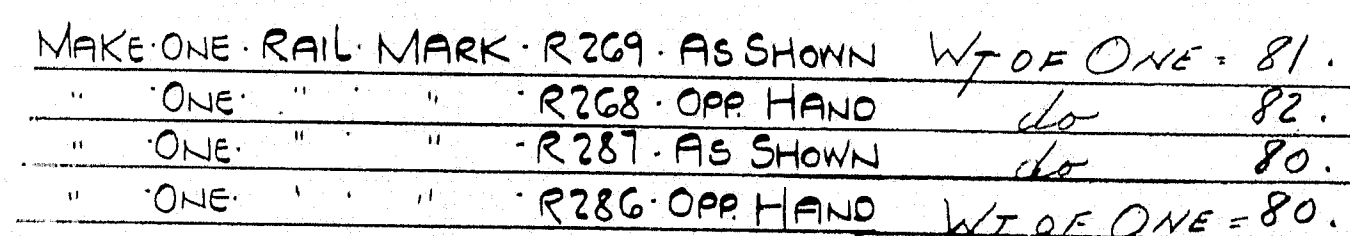 MAKE·ONE·RAIL·MARK·R269·AS SHOWN WT OF ONE = 81.
" ·ONE· " · " ·R268·OPP. HAND do 82.
" ·ONE· " · " -R287·AS SHOWN do 80.
" ·ONE· ' · " ·R286·OPP. HAND WT OF ONE = 80.